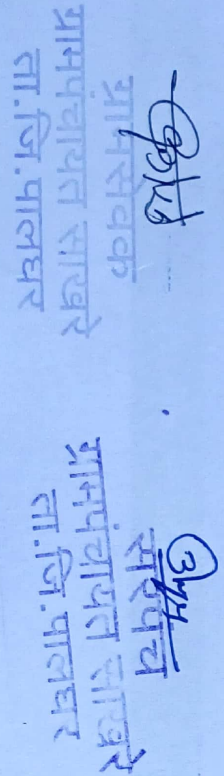 ग्रामसेवक
ग्रामपंचायत साखरे
ता.जि.पालघर
सरपंच
ग्रामपंचायत साखरे
ता.जि.पालघर